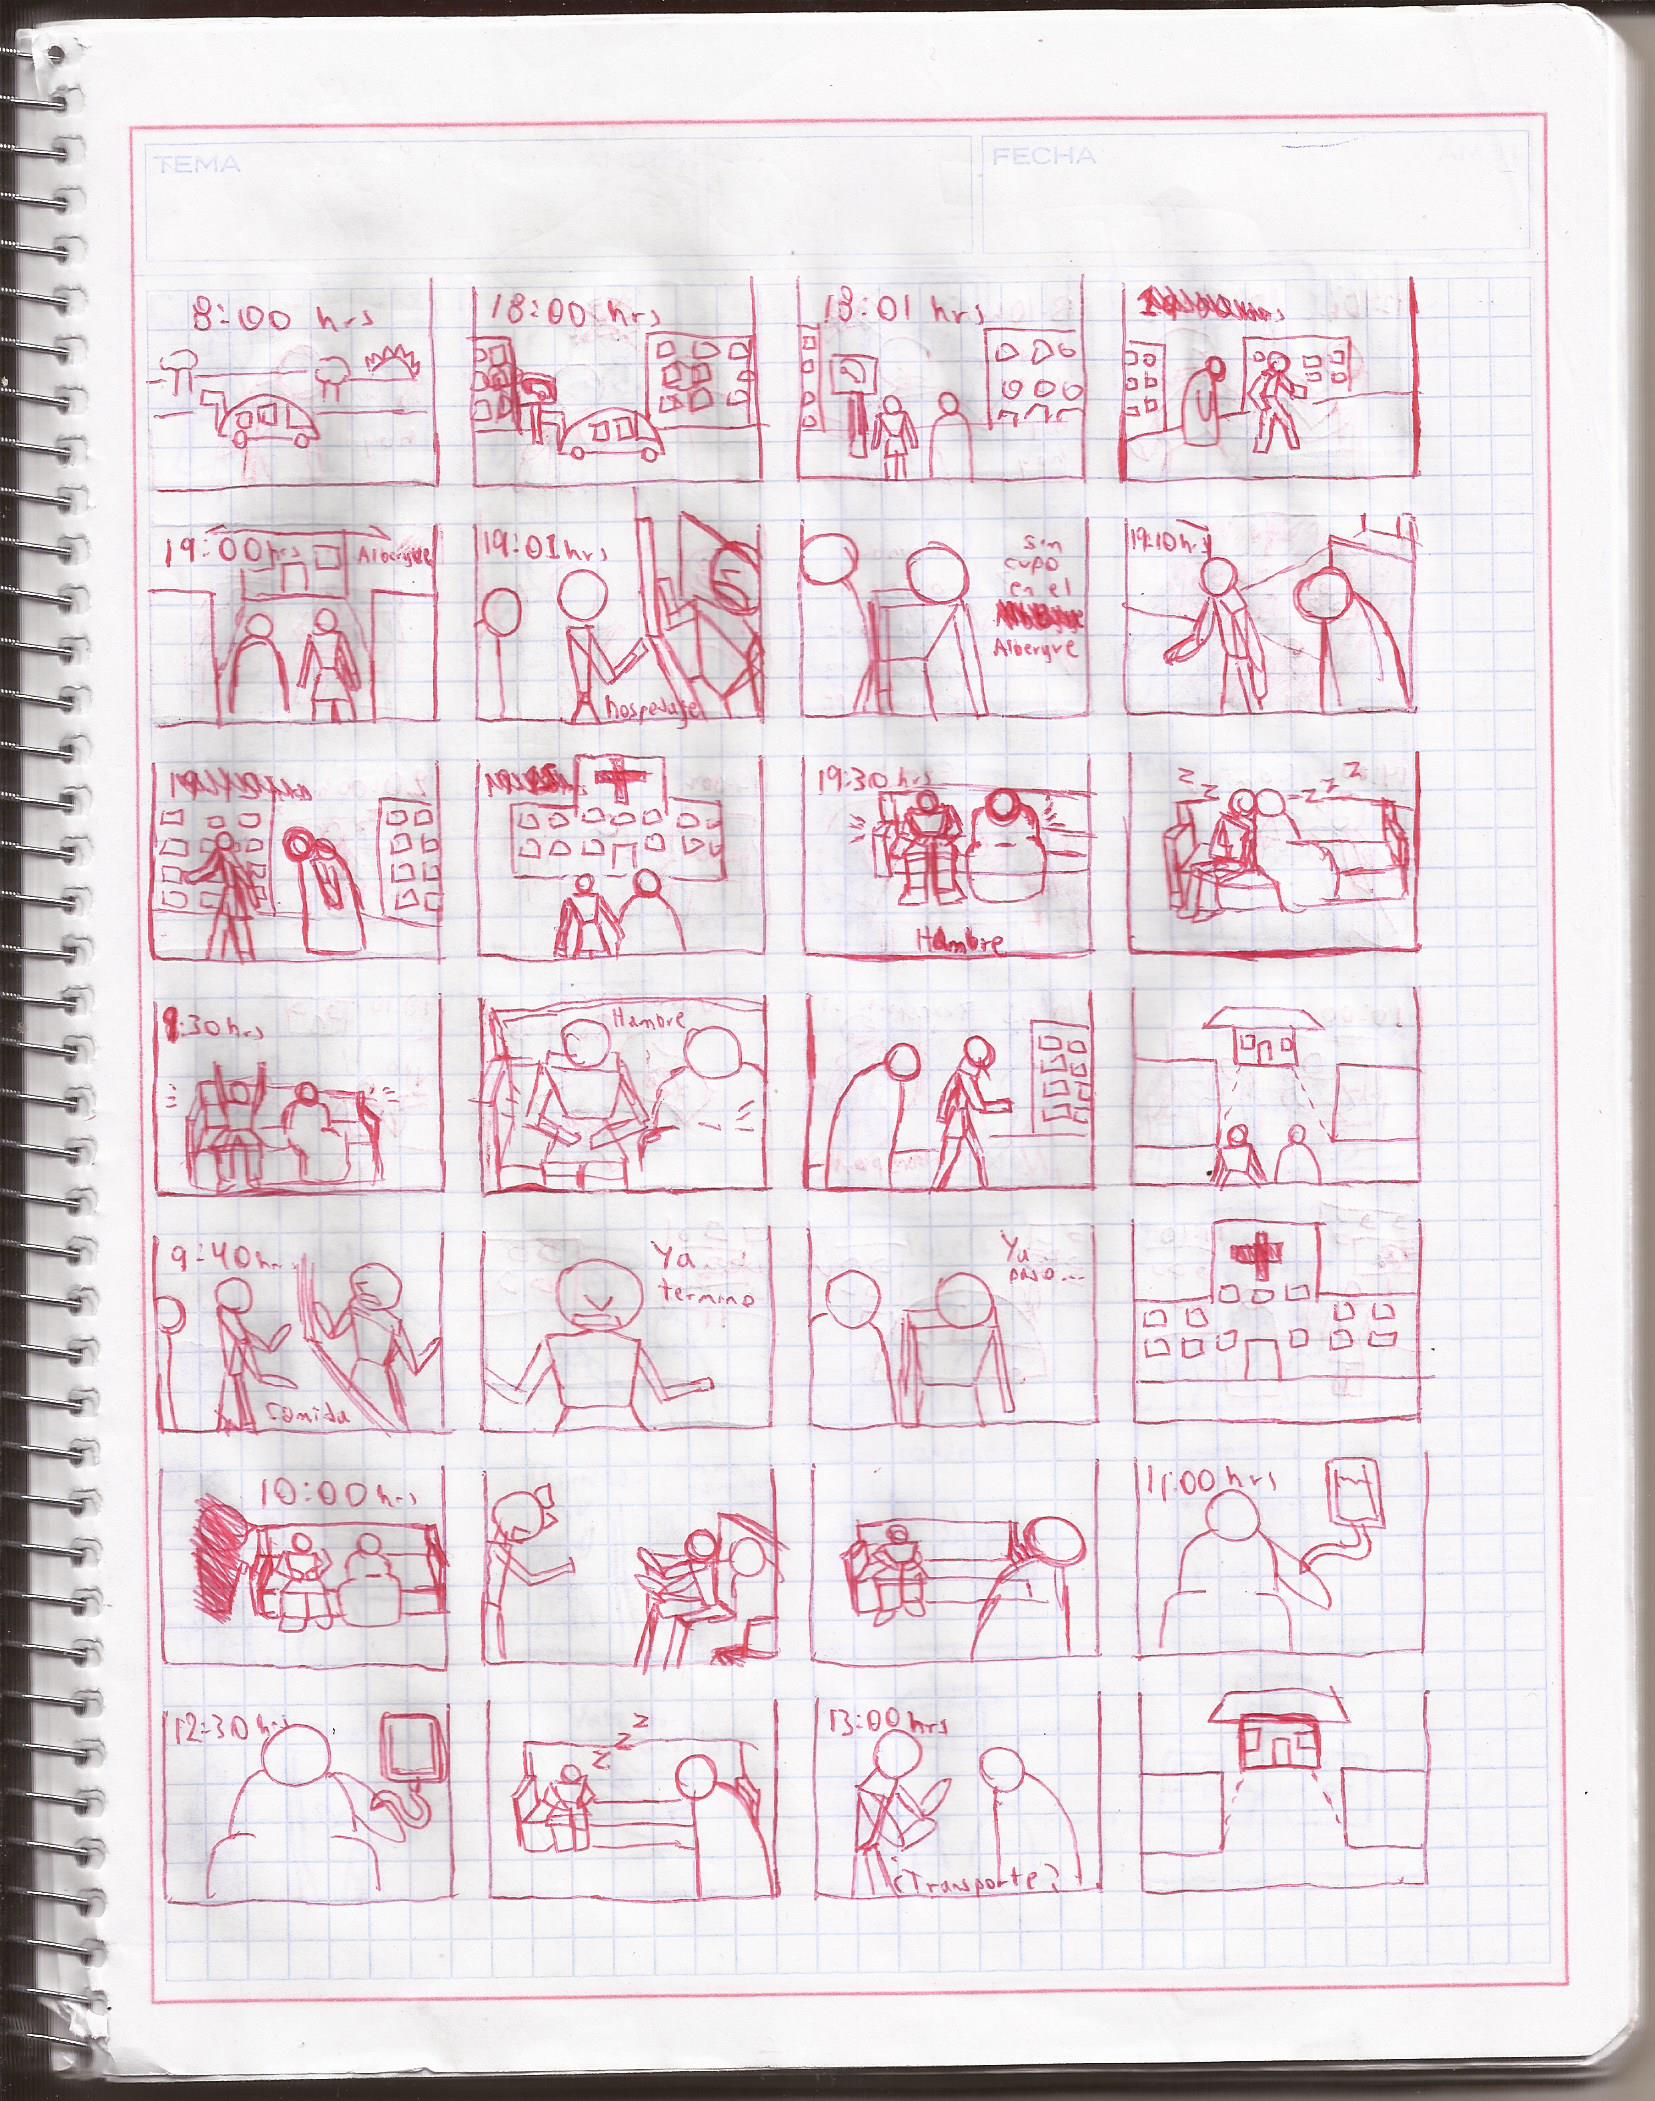 TEMA
FECHA
8:00 hrs
18:00 hrs
18:01 hrs
19:00 hrs
Albergue
19:01 hrs
hospedaje
sin
cupo
en el
Albergue
19:10 hrs
19:30 hrs
Hambre
z z z z z
9:30 hrs
Hambre
9:40 hrs
Comida
Ya
termino
Ya
paso...
10:00 hrs
11:00 hrs
12:30 hrs
z z z
13:00 hrs
¿Transporte?